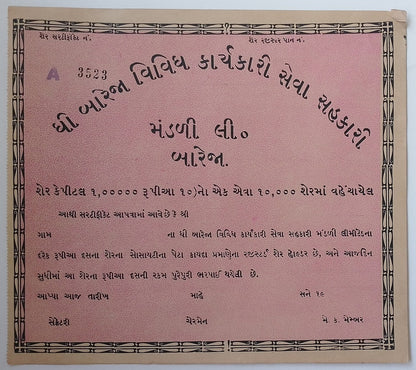 શેર સરટીફીકેટ નં. શેર રજીસ્ટર પાન નં.
A 3523
ધી બારેજા વિવિધ કાર્યકારી સેવા સહકારી
મંડળી લી૦
બારેજા.
શેર કેપીટલ ૧,૦૦૦૦૦ રૂપીઆ ૧૦)નો એક એવા ૧૦,૦૦૦ શેરમાં વહેંચાયેલ
આથી સરટીફીકેટ આપવામાં આવે છે કે શ્રી
ગામ ના ધી બારેજા વિવિધ કાર્યકારી સેવા સહકારી મંડળી લીમીટેડના
દરેક રૂપીઆ દસના શેરના સોસાયટીના પેટા કાયદા પ્રમાણેના રજીસ્ટર્ડ શેર હોલ્ડર છે, અને આજદિન
સુધીમાં આ શેરના રૂપીઆ દસની રકમ પુરેપુરી ભરપાઈ થયેલી છે.
આપ્યા આજ તારીખ માહે સને ૧૯
સેક્રેટરી ચેરમેન મે. ક. મેમ્બર